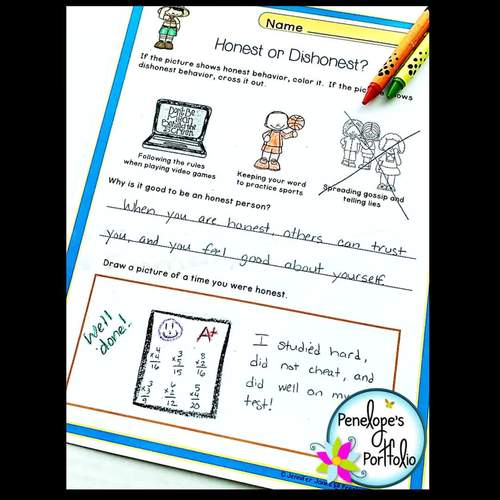 Name
Honest or Dishonest?
If the picture shows honest behavior, color it. If the picture shows
dishonest behavior, cross it out.
Following the rules
when playing video games
Keeping your word
to practice sports
Spreading gossip and
telling lies
Why is it good to be an honest person?
When you are honest, others can trust
you, and you feel good about yourself.
Draw a picture of a time you were honest.
Well
done!
A+
4 3 8
x4 x5 x2
16 15 16
3 6 5
x3 x2 x4
9 12 20
I studied hard,
did not cheat, and
did well on my
test!
Penelope's
Portfolio